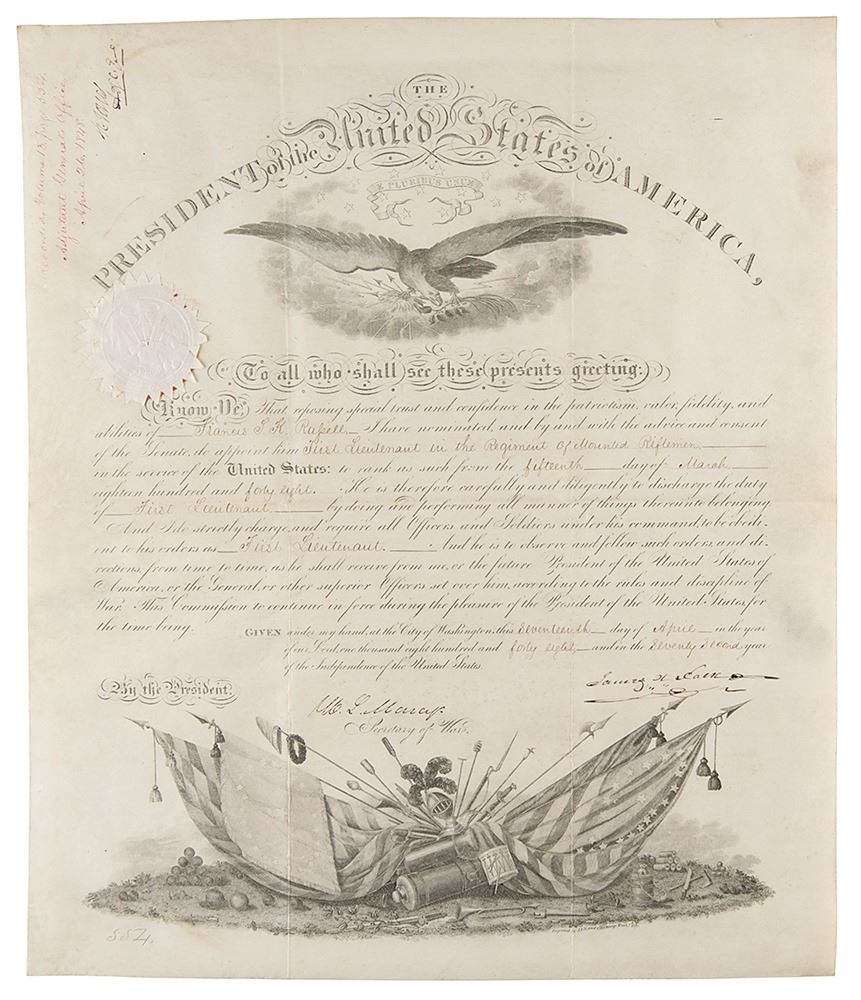 Adjutant General's Office
April 26, 1848.
THE
PRESIDENT of the United States of AMERICA,
E PLURIBUS UNUM
To all who shall see these presents greeting:
Know Ye, That reposing special trust and confidence in the patriotism, valor, fidelity, and
abilities of Francis S. K. Russell I have nominated, and by and with the advice and consent
of the Senate, do appoint him First Lieutenant in the Regiment of Mounted Riflemen
in the service of the United States: to rank as such from the fifteenth day of March
eighteen hundred and forty eight. He is therefore carefully and diligently to discharge the duty
of First Lieutenant by doing and performing all manner of things thereunto belonging.
And I do strictly charge, and require all Officers and Soldiers under his command, to be obedi-
ent to his orders as First Lieutenant. And he is to observe and follow such orders, and di-
rections, from time to time, as he shall receive from me, or the future President of the United States of
America, or the General, or other superior Officers set over him, according to the rules and discipline of
War. This Commission to continue in force during the pleasure of the President of the United States, for
the time being.
GIVEN under my hand, at the City of Washington, this Seventeenth day of April in the year
of our Lord, one thousand eight hundred and forty eight, and in the Seventy Second year
of the Independence of the United States.
By the President,
James K. Polk
W. L. Marcy
Secretary of War.